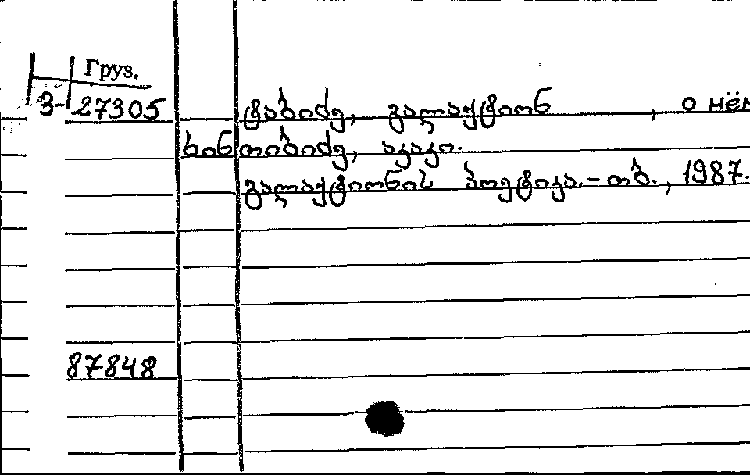 Груз.
3- 27305 ტაბიძე, გალაქტიონ , о нём
ხინთიბიძე, აკაკი.
გალაქტიონის პოეტიკა.- თბ., 1987.
87848